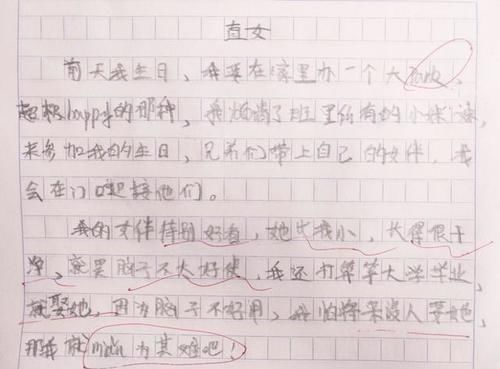 直女
前天我生日，我要在家里办一个大party，
超极happy的那种，我邀请了班里所有的小妹妹，
来参加我的生日，兄弟们带上自己的女伴，我
会在门口迎接他们。
我的女伴特别好看，她比我小，长得很干
净，就是脑子不太好使，我还打算等大学毕业，
就娶她，因为脑子不好用，我怕将来没人要她，
那我就 为其难吧！